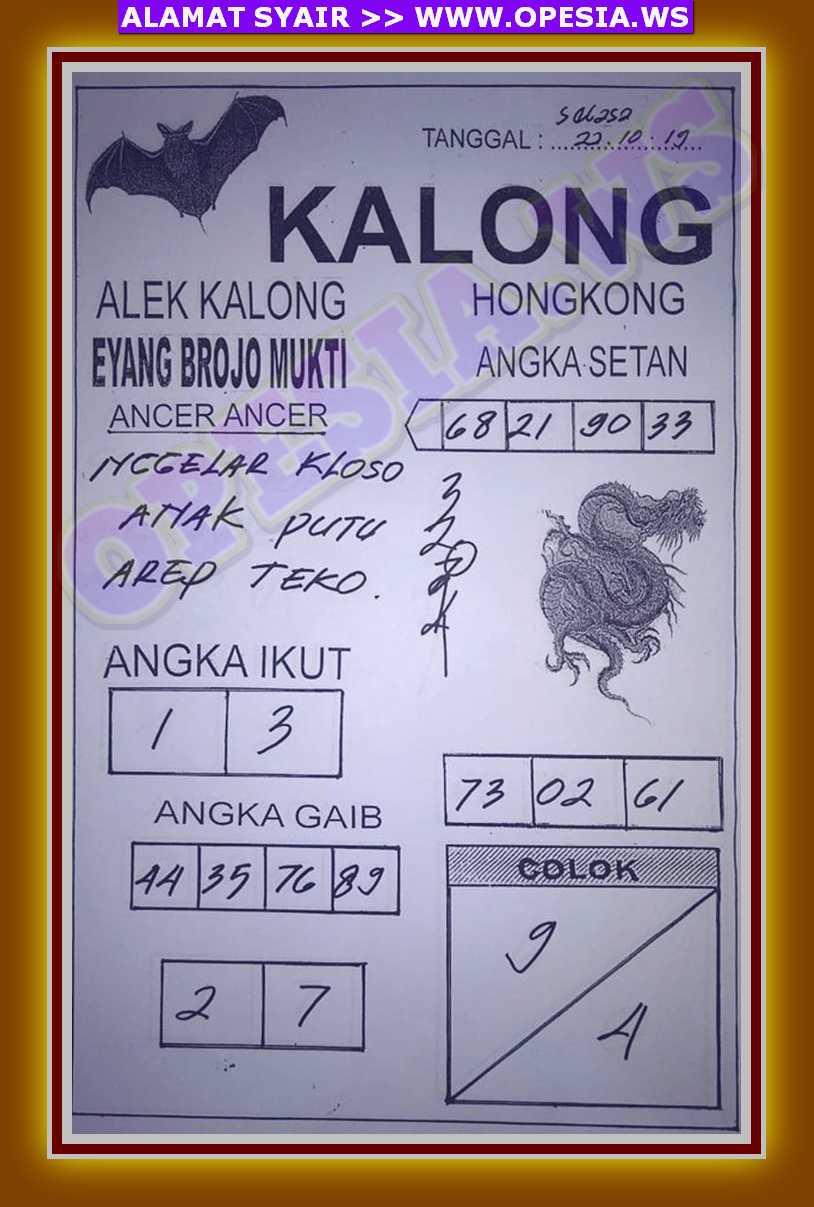 ALAMAT SYAIR >> WWW.OPESIA.WS
Selasa
TANGGAL : 22.10.19
KALONG
ALEK KALONG
HONGKONG
EYANG BROJO MUKTI
ANGKA SETAN
ANCER ANCER
68 21 90 33
NGGELAR KLOSO
ANAK PUTU
AREP TEKO.
3
2
4
OPESIA.WS
ANGKA IKUT
1 3
73 02 61
ANGKA GAIB
44 35 76 89
COLOK
9
4
2 7